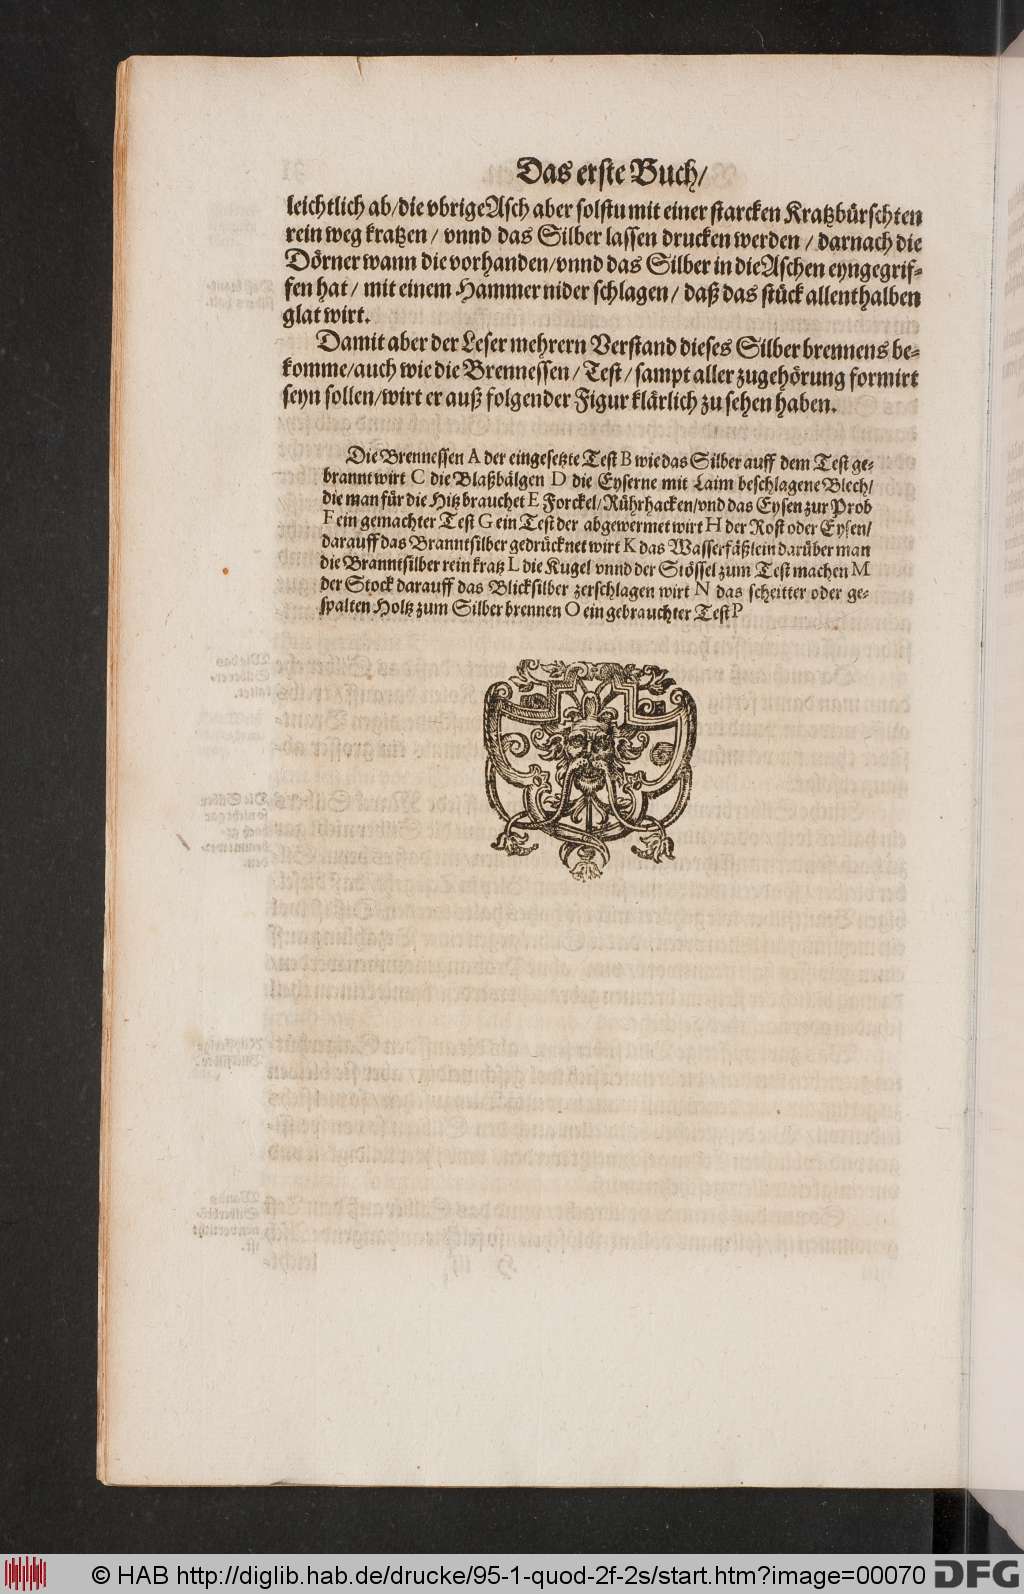 Das erste Buch/
leichtlich ab/die vbrige Asch aber solstu mit einer starcken Kratzbürschten
rein weg kratzen / vnnd das Silber lassen drucken werden / darnach die
Dörner wann die vorhanden/vnnd das Silber in die Aschen eyngegrif-
fen hat / mit einem Hammer nider schlagen / daß das stück allenthalben
glat wirt.
Damit aber der Leser mehrern Verstand dieses Silber brennens be-
komme/auch wie die Brennessen / Test / sampt aller zugehörung formirt
seyn sollen/wirt er auß folgender Figur klärlich zu sehen haben.
Die Brennessen A der eingesetzte Test B wie das Silber auff dem Test ge-
brannt wirt C die Blaßbälgen D die Eyserne mit Laim beschlagene Blech/
die man für die Hitz brauchet E Forckel/Rührhacken/vnd das Eysen zur Prob
F ein gemachter Test G ein Test der abgewermet wirt H der Rost oder Eysen/
darauff das Branntsilber gedrücknet wirt K das Wasserfäßlein darüber man
die Branntsilber rein kratz L die Kugel vnnd der Stössel zum Test machen M
der Stock darauff das Blicksilber zerschlagen wirt N das scheitter oder ge-
spalten Holtz zum Silber brennen O ein gebrauchter Test P
© HAB http://diglib.hab.de/drucke/95-1-quod-2f-2s/start.htm?image=00070
DFG